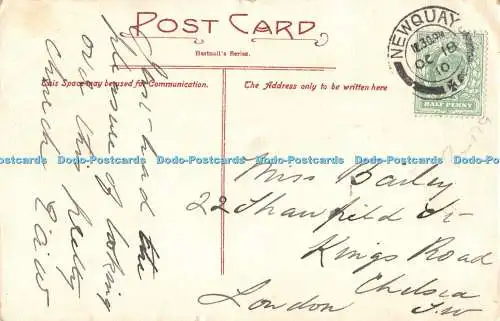 POST CARD
Hartnoll's Series.
This Space may be used for Communication.
The Address only to be written here
NEWQUAY
12.30PM
OC 18
10
HALF PENNY
Just had the
pleasure of looking
over this pretty
Church
Miss Bailey
22 Shawfield St
Kings Road
Chelsea
London S.W
Dodo-Postcards Dodo-Postcards Dodo-Postcards Dodo-Postcards Dodo-Postcards